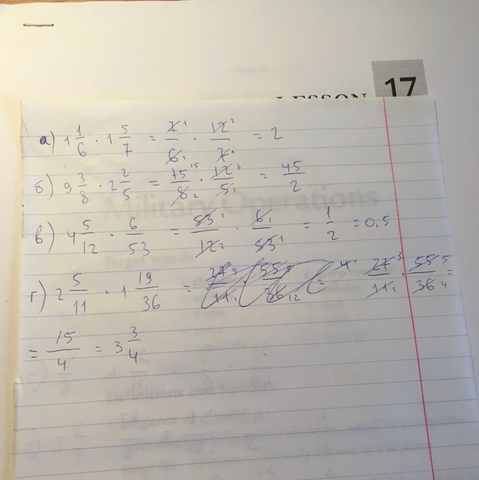 LESSON 17
Military Operations
а) 1 1/6 · 1 5/7 = 7/6 · 12/7 = 2
б) 9 3/8 · 2 2/5 = 75/8 · 12/5 = 45/2
в) 4 5/12 · 6/53 = 53/12 · 6/53 = 1/2 = 0.5
г) 2 5/11 · 1 19/36 = 27/11 · 55/36 =
= 15/4 = 3 3/4